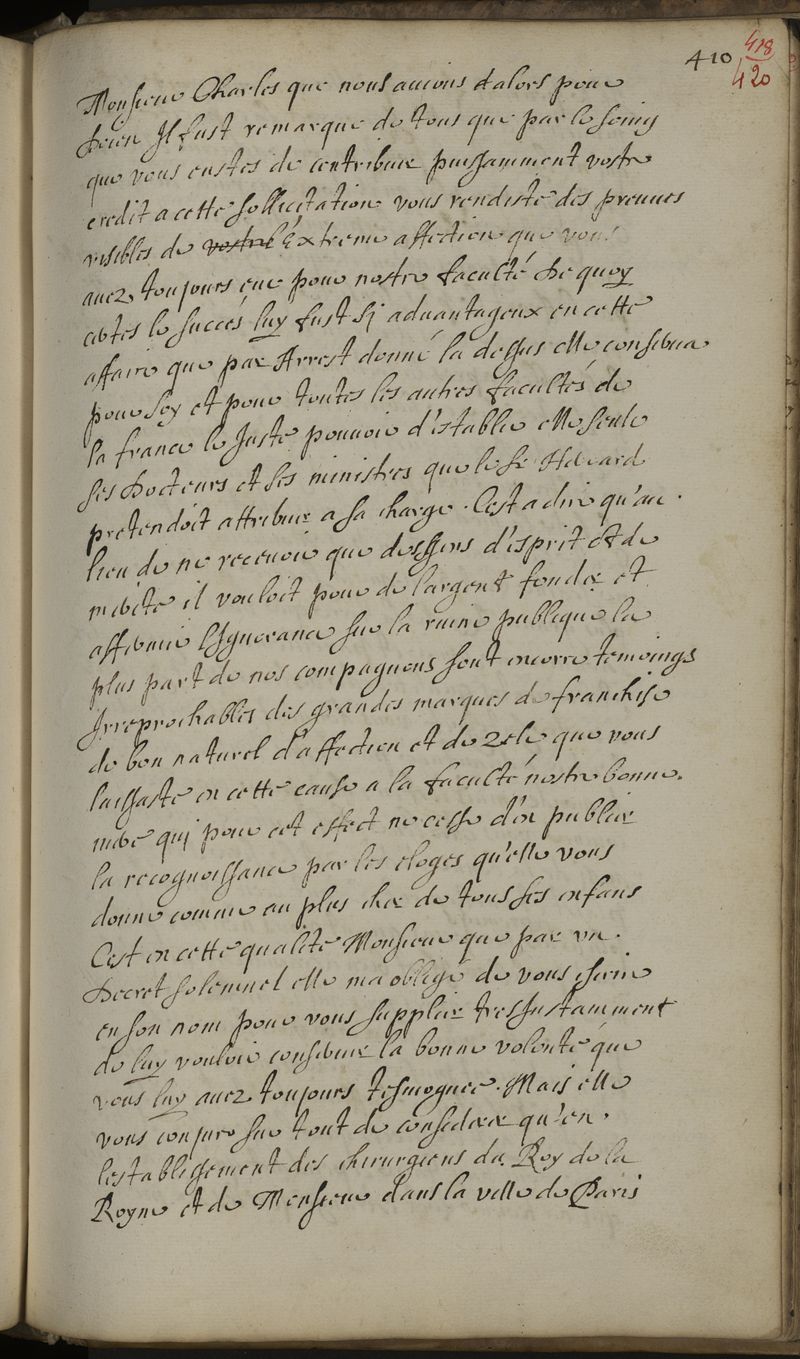 410
418
420
Monsieur Charles que nous avions dalors pour
Doien Il fust remarque de tous que par le soing
que vous eustes de contribuer puissamment vostre
credit a cette sollicitation vous rendiste des preuues
visibles de vostre Extreme affection que vous
auez toujours eue pour nostre faculté De quoy
certes le succés luy fust si aduantageux en cette
affaire que par Arrest donné la dessus elle conserua
pour soy et pour toutes les autres facultés de
la france le Juste pouuoir d'establir elle seule
ses Docteurs et ses ministres que le Sr
pretendoit attribuer a sa charge. Cest a dire qu'au
lieu de ne receuoir que des gens d'esprit et de
merite il vouloit pour de l'argent fonder et
affermir l'Ignorance sur la ruine publique la
plus part de nos compagnons sont encorre temoings
Irreprochables des grandes marques de franchise
de bon naturel d'affection et de zele que vous
laissaste en cette cause a la faculté nostre bonne
mere qui pour cet effect ne cesse d'en publier
la recognoissance par les eloges qu'elle vous
donne comme au plus cher de tous ses enfans
C'est en cette qualite Monsieur que par un
Decret solemnel elle ma obligé de vous escrire
en son nom pour vous supplier tres Instamment
de luy vouloir conseruer la bonne volonté que
vous luy auez toujours tesmognee. Mais elle
vous conjure sur tout de considerer qu'en
l'establissement des chirurgiens du Roy de la
Royne et de Monsieur dans la ville de Paris